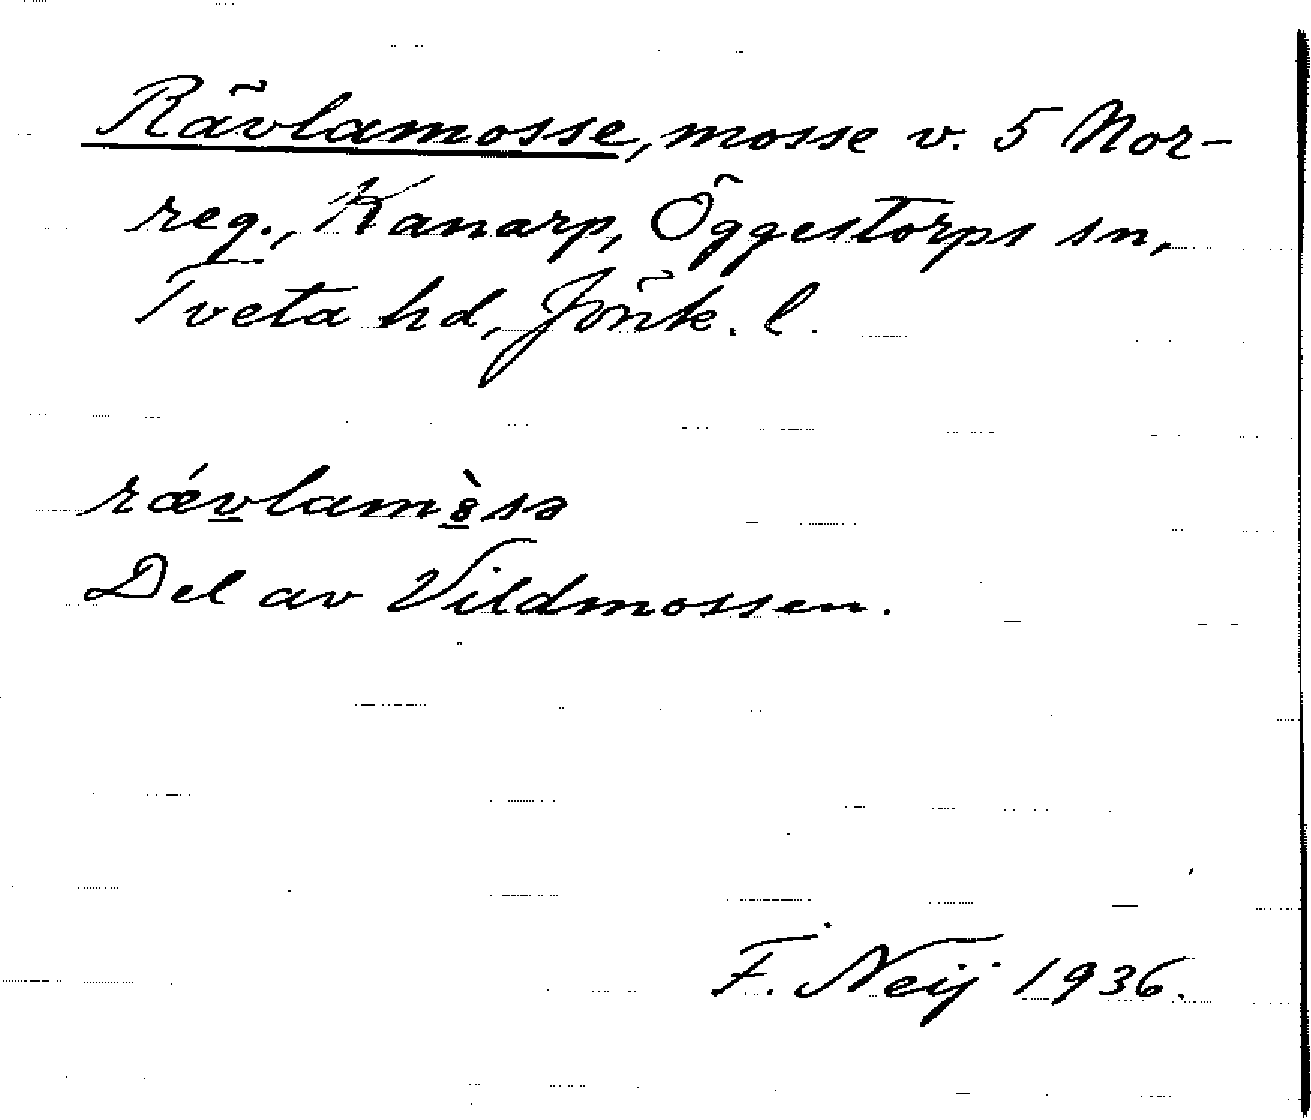 Rävlamosse, mosse v. 5 Nor-
reg., Kanarp, Öggestorps sn,
Tveta hd, Jönk. l.
rǽv̲lamòsə
Del av Vildmossen.
F. Neij 1936.